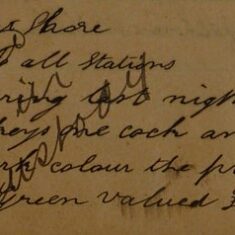 Shore
all Stations
ring last nigh
keys one cock an
colour the pr
green valued £